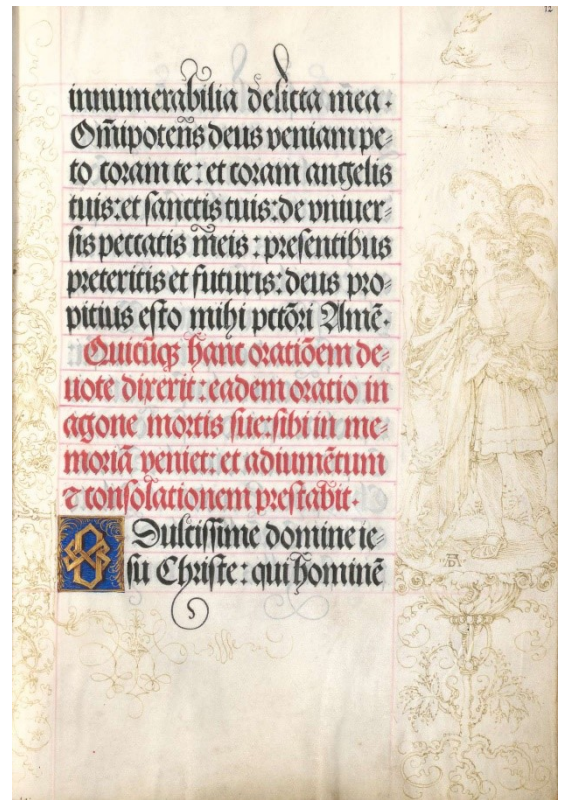 12
innumerabilia delicta mea.
Om̄ipotens deus veniam pe⸗
to coram te: et coram angelis
tuis: et sanctis tuis: de vniuer⸗
sis peccatis meis: presentibus
preteritis et futuris: deus pro⸗
pitius esto mihi pctōri Amē.
Quicūqꝫ hanc oratiōem de⸗
uote dixerit: eadem oratio in
agone mortis sue: sibi in me⸗
moriā veniet: et adiumētum
⁊ consolationem prestabit.
O Dulcissime domine ie⸗
su Christe: qui hominē
AD